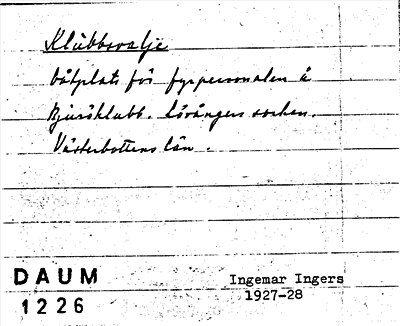 Klubbsvalje
båtplats för fyrpersonalen å
Bjuröklubb. Lövångers socken.
Västerbottens län.
DAUM
1226
Ingemar Ingers
1927-28